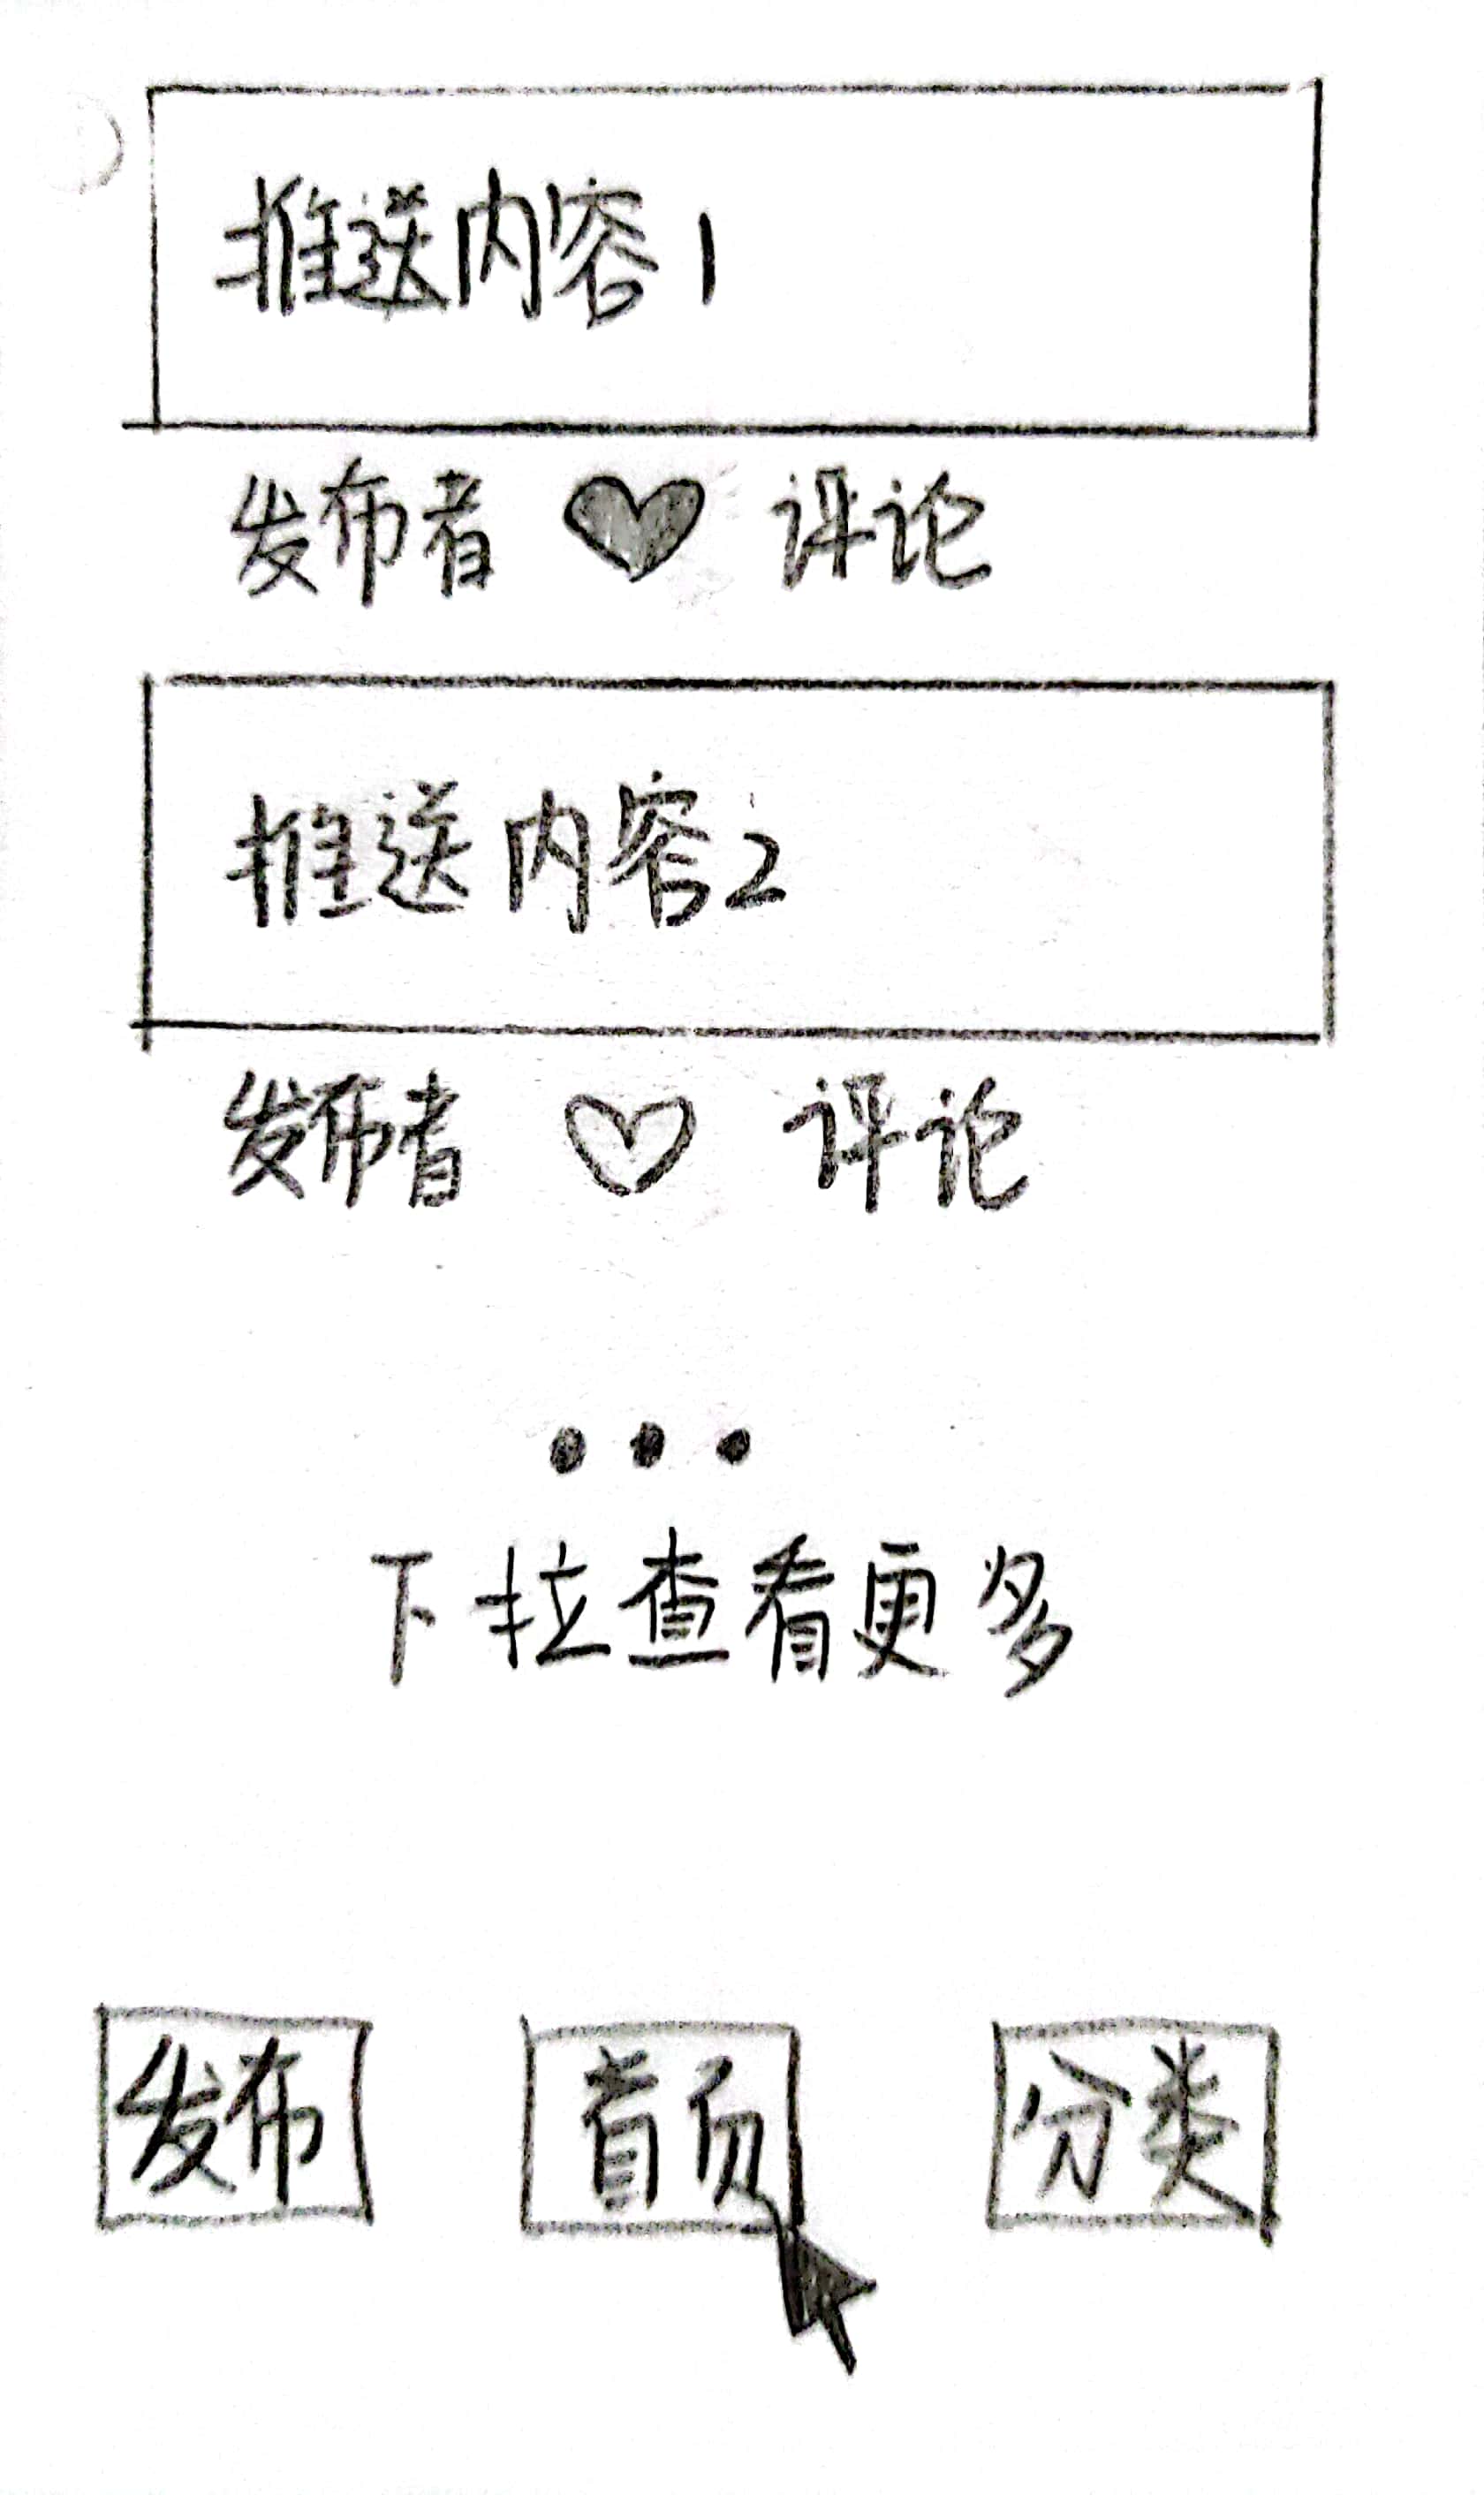 推送内容1
发布者 评论
推送内容2
发布者 评论
...
下拉查看更多
发布 首页 分类